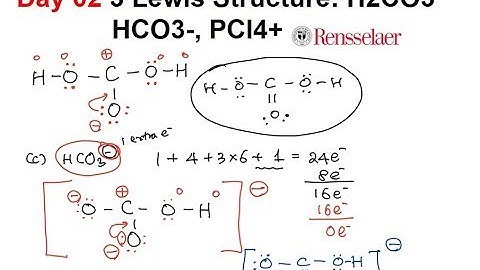 Day 02 5 Lewis Structure: H2CO3
HCO3-, PCl4+ Rensselaer
H-O-C-O-H
O
H-O-C-O-H
O
1 extra e-
(c) HCO3- 1 + 4 + 3×6 + 1 = 24e-
8e-
16e-
16e-
0e-
[O-C-O-H]
O
[O-C-OH]